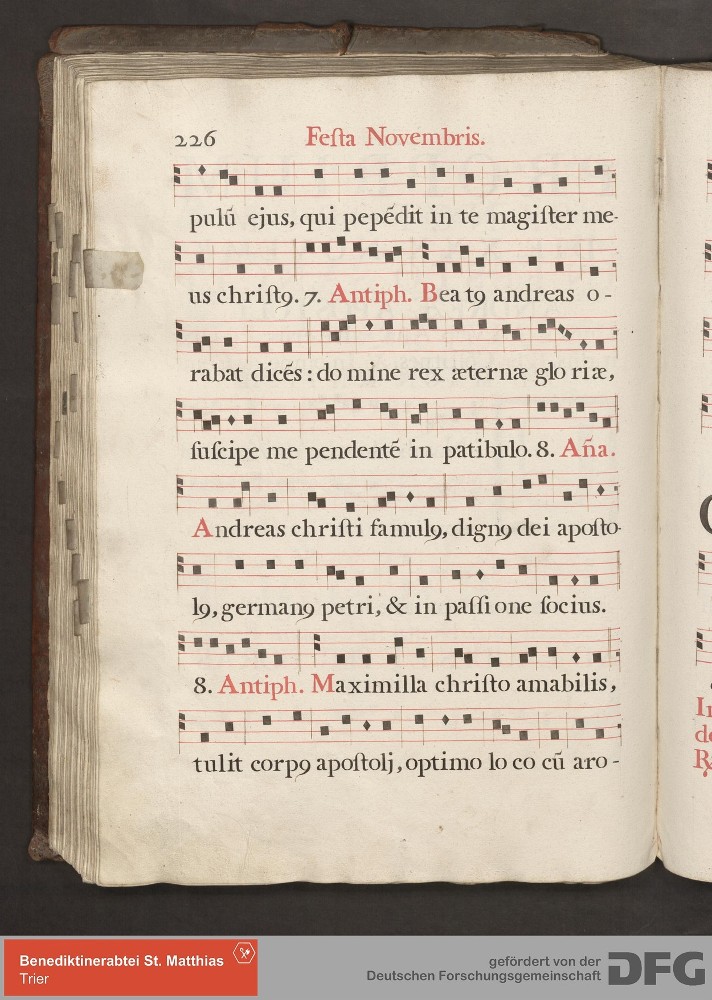 226 Feſta Novembris.
pulū ejus, qui pepēdit in te magiſter me-
us chriſtꝯ. 7. Antiph. Beatꝯ andreas o-
rabat dicēs: domine rex æternæ gloriæ,
ſuſcipe me pendentē in patibulo. 8. Aña.
Andreas chriſti famulꝯ, dignꝯ dei apoſto-
lꝯ, germanꝯ petri, & in paſſione ſocius.
8. Antiph. Maximilla chriſto amabilis,
tulit corpꝯ apoſtolj, optimo loco cū aro-
In
de
Benediktinerabtei St. Matthias
Trier
gefördert von der
Deutschen Forschungsgemeinschaft
DFG